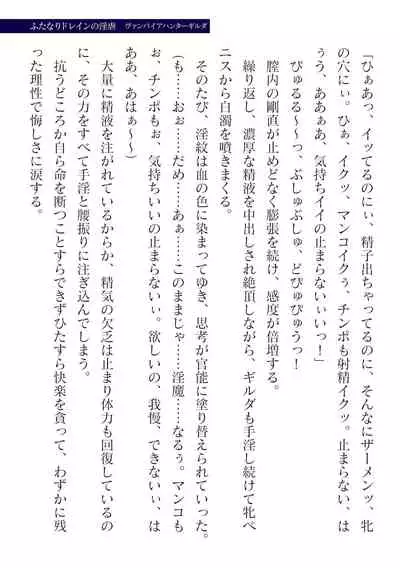 ふたなりドレインの淫虐　ヴァンパイアハンターギルダ
「ひぁあっ、イッてるのにぃ、精子出ちゃってるのに、そんなにザーメンッ、牝
の穴にぃ。ひぁ、イクッ、マンコイクぅ、チンポも射精イクッ。止まらない、は
ぅう、ああぁあ、気持ちイイの止まらないぃいっ！」
　ぴゅるる～～っ、ぶしゅぶしゅ、どぴゅぴゅうっ！
　膣内の剛直が止めどなく膨張を続け、感度が倍増する。
　繰り返し、濃厚な精液を中出しされ絶頂しながら、ギルダも手淫し続けて牝ペ
ニスから白濁を噴きまくる。
　そのたび、淫紋は血の色に染まってゆき、思考が官能に塗り替えられていった。
（も……おぉ……だめ……あぁ……このままじゃ……淫魔……なるぅ。マンコも
ぉ、チンポもぉ、気持ちいいの止まらないぃ。欲しいの、我慢、できないぃ、は
ああ、あはぁ～～）
　大量に精液を注がれているからか、精気の欠乏は止まり体力も回復しているの
に、その力をすべて手淫と腰振りに注ぎ込んでしまう。
　抗うどころか自ら命を断つことすらできずひたすら快楽を貪って、わずかに残
った理性で悔しさに涙する。